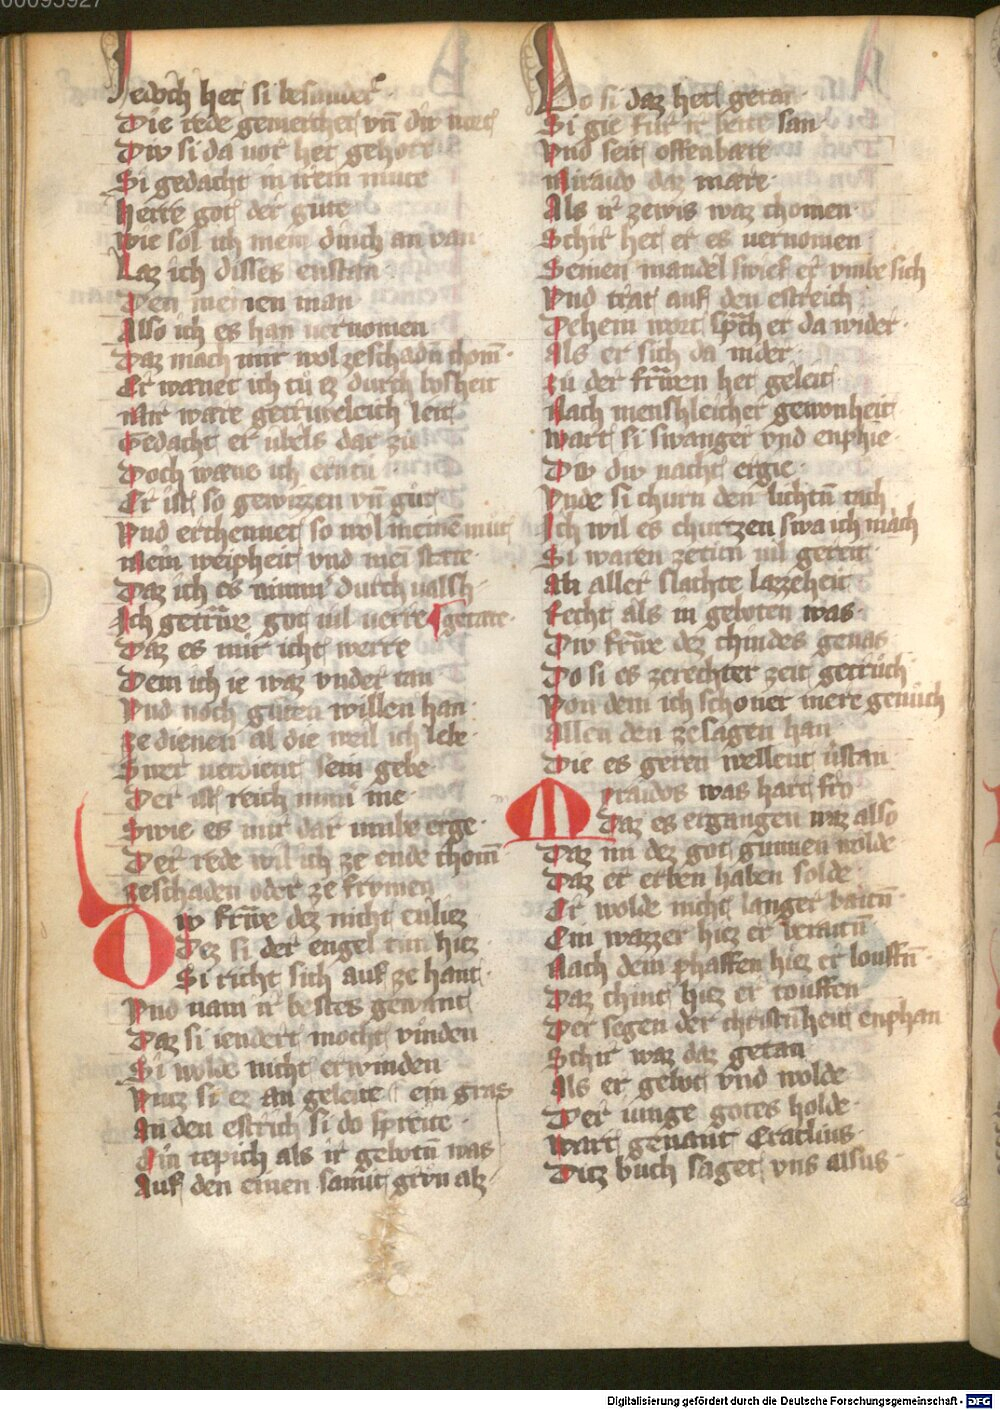 00095927
Jedoch het si besunder
Die rede gemerchet vn̄ div wort
Div si da vor het gehort
Si gedacht in irem mute
Herre got der gute
Wie sol ich mein dinch an van
Laz ich disses enstan
Den meinen man
Also ich es han vernomen
Daz mach mir wol zeschadn̄ chom̄
Er wænet ich tů ez durch bosheit
Mir wære getriweleich leit
Gedæcht er vbels dar zů
Doch wæne ich ern tů
Er ist so gewizzen vn̄ gůt
Vnd erchennet so wol meinē můt
Mein weipheit vnd mei stæte
Daz ich es nimm̄ durch valsch
Ich getrůwe got vil verre getæte
Daz es mir icht werre
Dem ich ie waz vnder tan
Vnd noch guten willen han
Ze dienen al die weil ich lebe
Swer verdient sein gebe
Der ist reich nimm̄ me
Swie es mir dar vmbe erge
Der rede wil ich ze ende chom̄
Zeschaden oder ze frvmen
Div frowe dez nicht enliez
Dez si der engel tůn hiez
Si richt sich auf ze hant
Vnd nam ir bestes gewant
Daz si iendert mocht vinden
Si wolde nicht erwinden
Vntz si ez an geleite ein gras
An den estrich si do spreite
Ein tepich als ir gebotn̄ was
Auf den einen samit grvn als
Do si daz het getan
Si gie fůr ir bette san
Vnd seit offenbære
Miraido daz mære
Als ir zewis waz chomen
Schir het er es vernomen
Seinen mandel swief er vmbe sich
Vnd trat auf den estreich
Dehein wort sprach er da wider
Als er sich da nider
Zů der frowen het geleit
Nach menschleicher gewonheit
Wart si swanger vnd enphie
Div div nacht ergie
Vnde si churn den lichtn̄ tach
Ich wil es churtzen swa ich mach
Si waren zetůn vil gereit
An aller slachte lazzeheit
Recht als in geboten was
Div frowe dez chindes genas
Do si es zerechter zeit getrůch
Von dem ich schoner mere genůch
Allen den zesagen han
Die es geren wellent v̊stan
Miraidos was hart fro
Daz es ergangen waz also
Daz im dez got gunnen wolde
Daz er erben haben solde
Er wolde nicht langer baitn̄
Ein wazzer hiez er beraitn̄
Nach dem phaffen hiez er louffn̄
Daz chint hiez er touffen
Der segen der christn̄heit enphan
Schir waz daz getan
Als er gebot vnd wolde
Der iunge gotes holde
Wart genant Eraclius
Ditz buch saget vns alsus
Digitalisierung gefördert durch die Deutsche Forschungsgemeinschaft - DFG